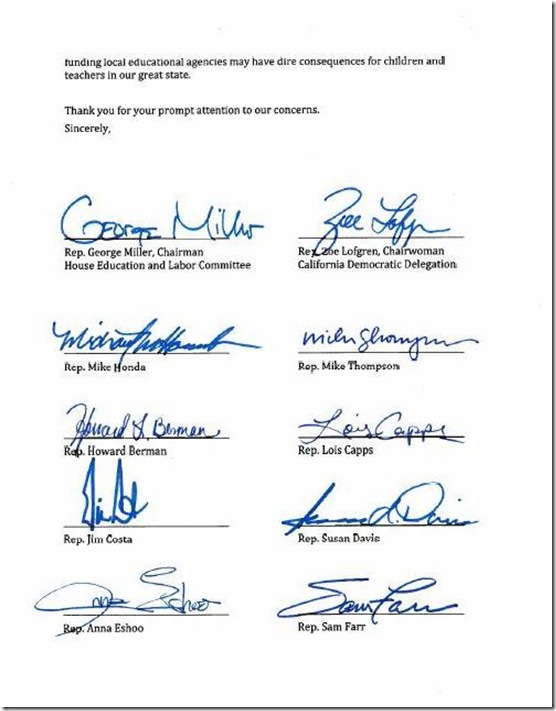 funding local educational agencies may have dire consequences for children and
teachers in our great state.
Thank you for your prompt attention to our concerns.
Sincerely,
George Miller
Zoe Lofgren
Rep. George Miller, Chairman
Rep. Zoe Lofgren, Chairwoman
House Education and Labor Committee
California Democratic Delegation
Mike Thompson
Rep. Mike Honda
Rep. Mike Thompson
Howard L. Berman
Lois Capps
Rep. Howard Berman
Rep. Lois Capps
Rep. Jim Costa
Rep. Susan Davis
Anna Eshoo
Sam Farr
Rep. Anna Eshoo
Rep. Sam Farr